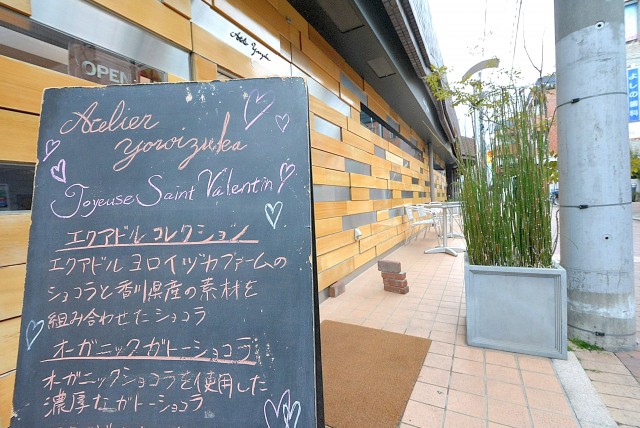 OPEN
Atelier Yoroizuka
Atelier
yoroizuka
Joyeuse Saint Valentin
エクアドルコレクション
エクアドルヨロイヅカファームの
ショコラと香川県産の素材を
組み合わせたショコラ
オーガニックガトーショコラ
オーガニックショコラを使用した
濃厚なガトーショコラ